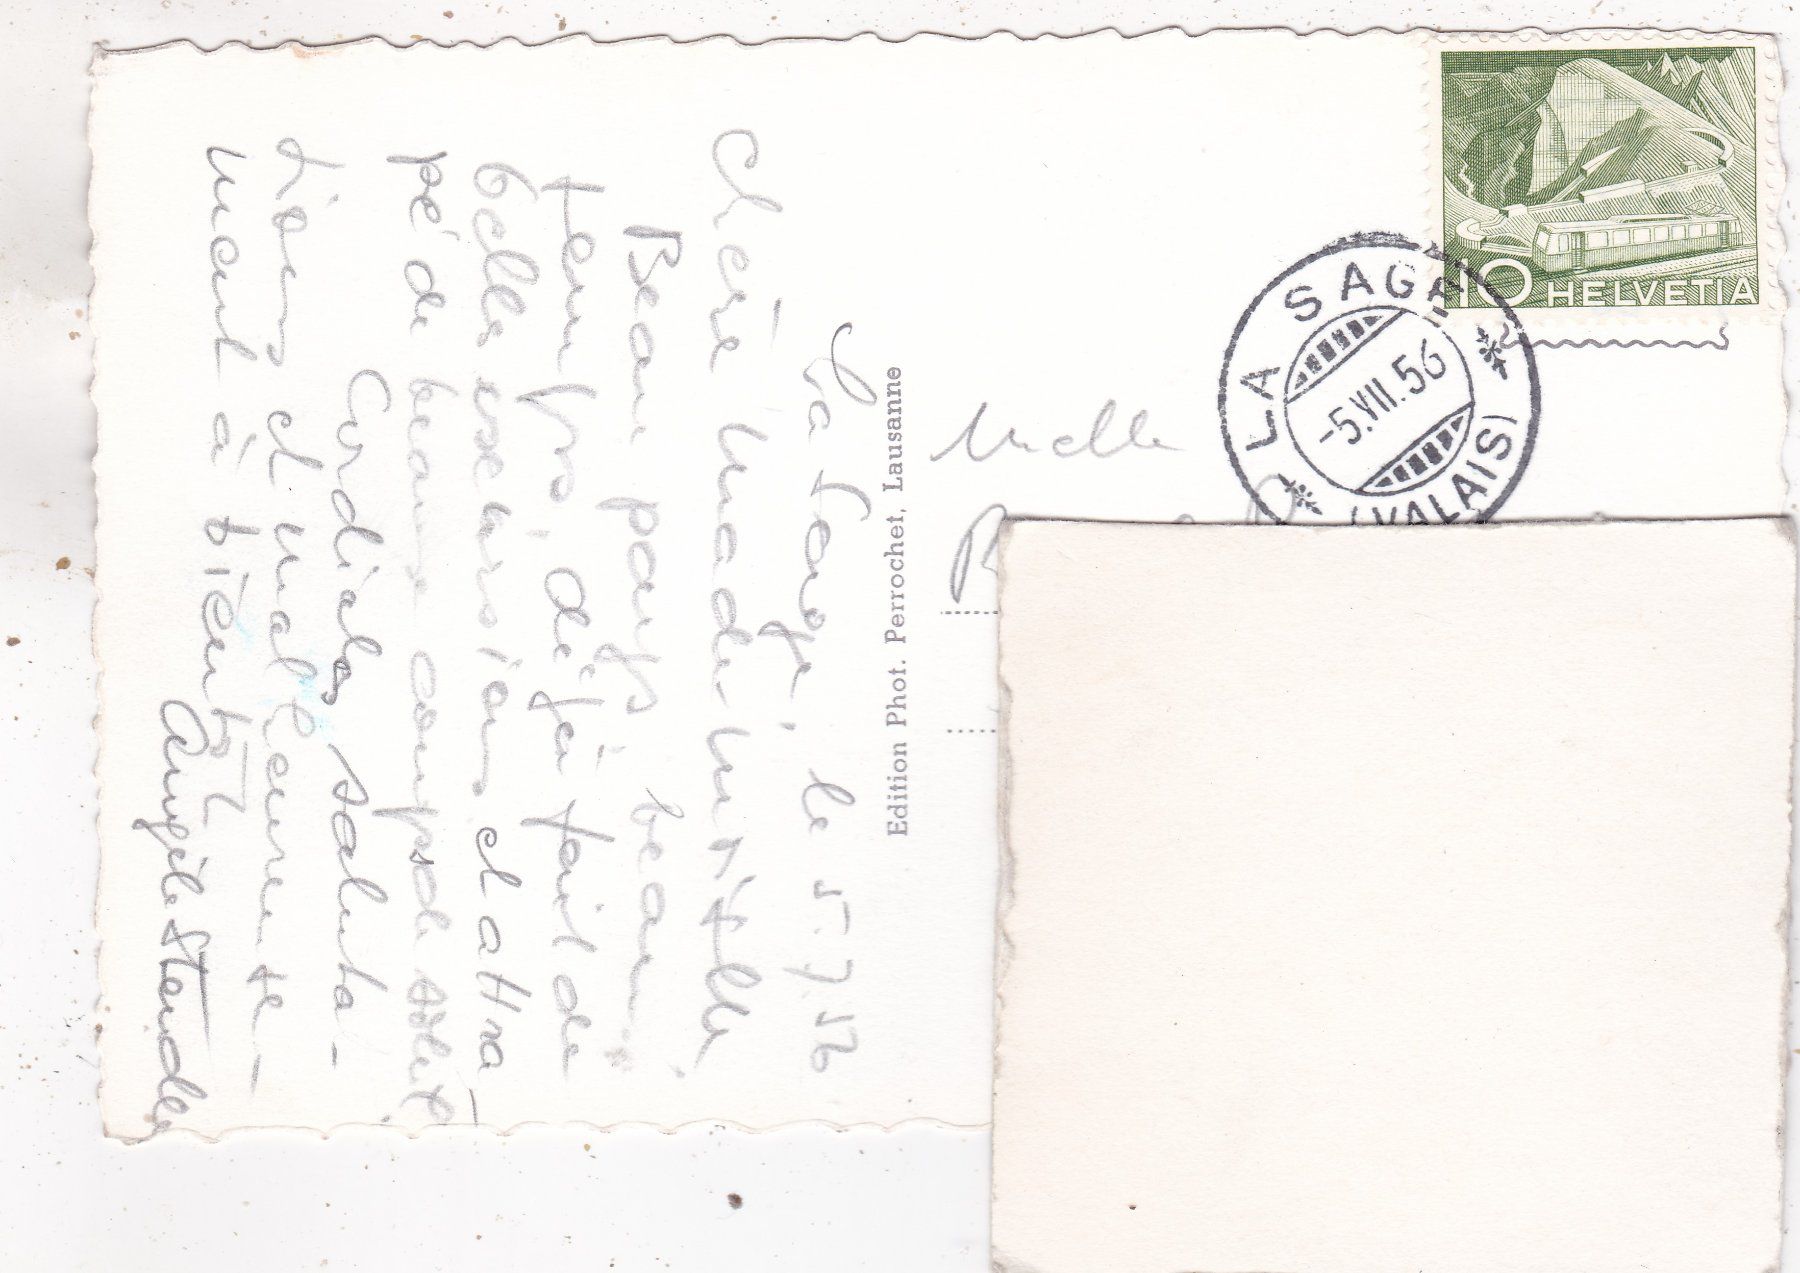 La Forge, le 5.7.56
Chère Mademoiselle
Beau pays, beau
temps, déjà fait de
belles excursions et attra
pé de beaux coups de soleil
Cordiales saluta-
tions et malheureuse-
ment à bientôt
Angèle
Edition Phot. Perrochet, Lausanne
Melle
LA SAGE
-5.VII.56
(VALAIS)
10 HELVETIA